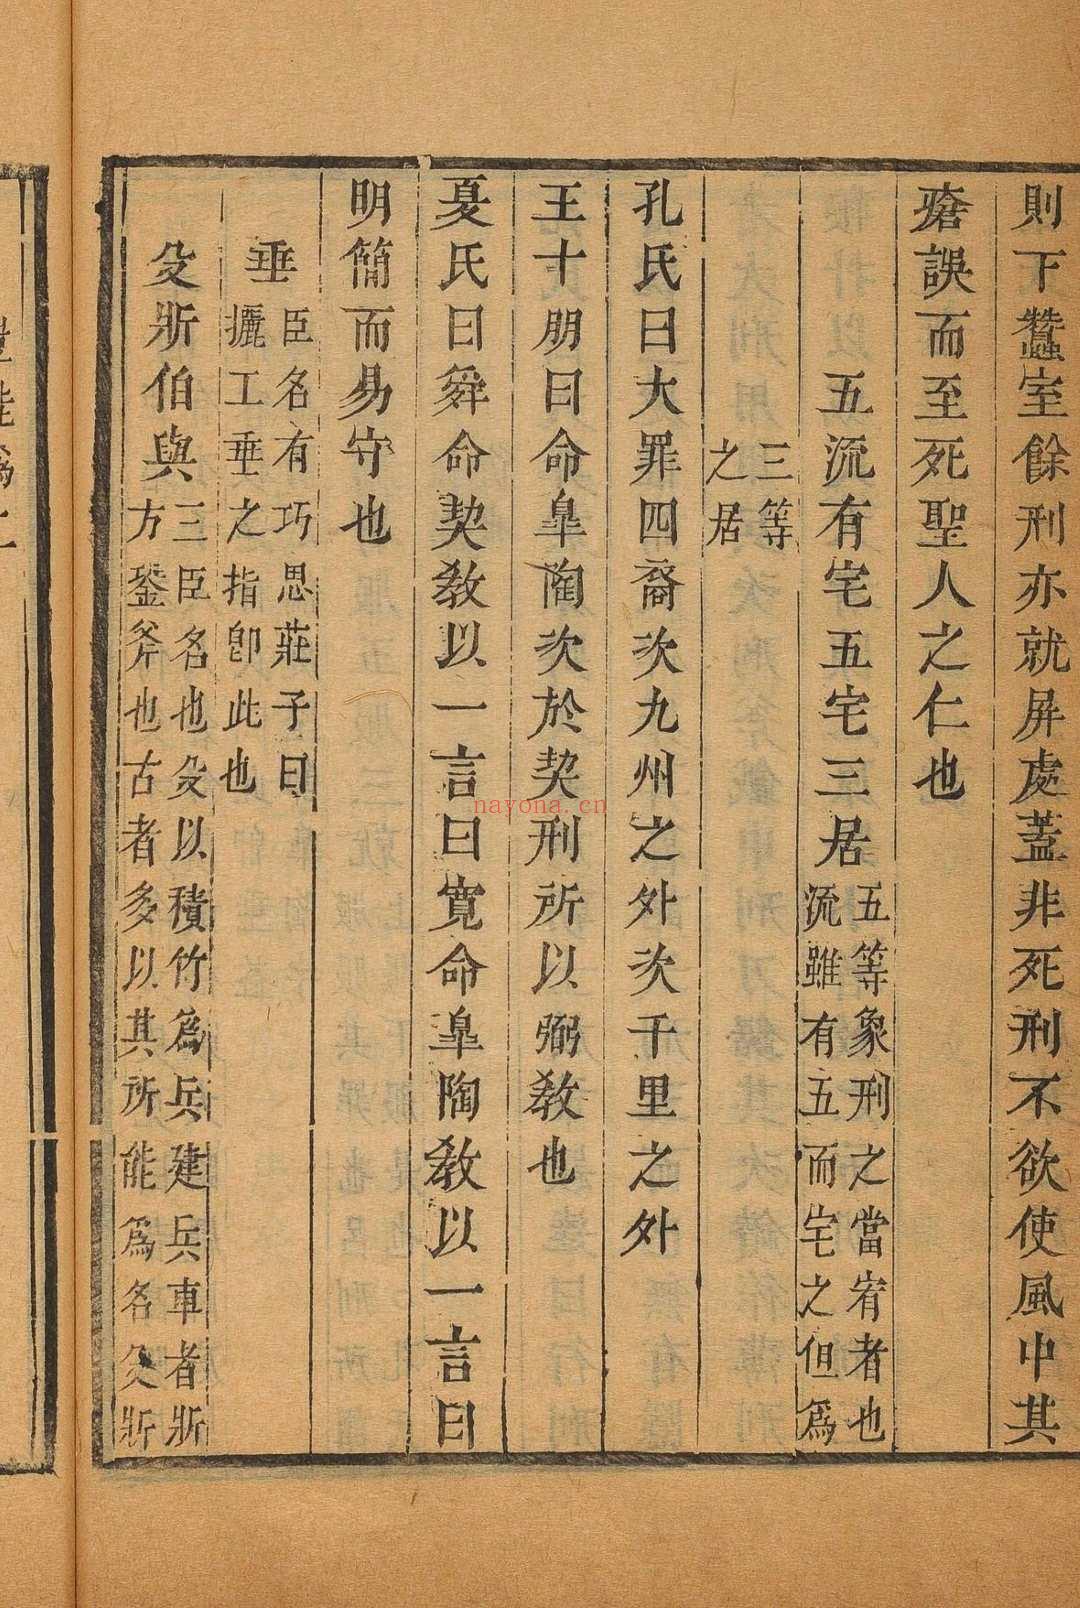 則下蠶室餘刑亦就屏處蓋非死刑不欲使風中其
瘡誤而至死聖人之仁也
五流有宅五宅三居五等象刑之當宥者也
流雖有五而宅之但爲
三等
之居
孔氏曰大罪四裔次九州之外次千里之外
王十朋曰命臯陶次於契刑所以弼敎也
夏氏曰舜命契敎以一言曰寬命臯陶敎以一言曰
明簡而易守也
垂臣名有巧思莊子曰
攦工垂之指卽此也
殳斨伯與三臣名也殳以積竹爲兵建兵車者斨
方銎斧也古者多以其所能爲名殳斨
nayona.cn